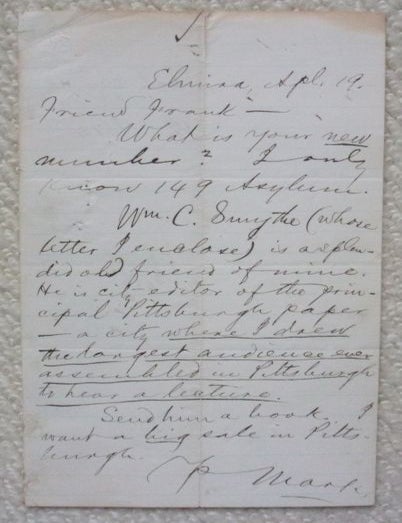 Elmira, Apl. 19.
Friend Frank —
What is your new
number? I only
know 149 Asylum.
Wm. C. Smythe (whose
letter I enclose) is a splen-
did old friend of mine.
He is city editor of the prin-
cipal Pittsburgh paper
— a city where I drew
the largest audience ever
assembled in Pittsburgh
to hear a lecture.
Send him a book. I
want a big sale in Pitts-
burgh.
Mark.